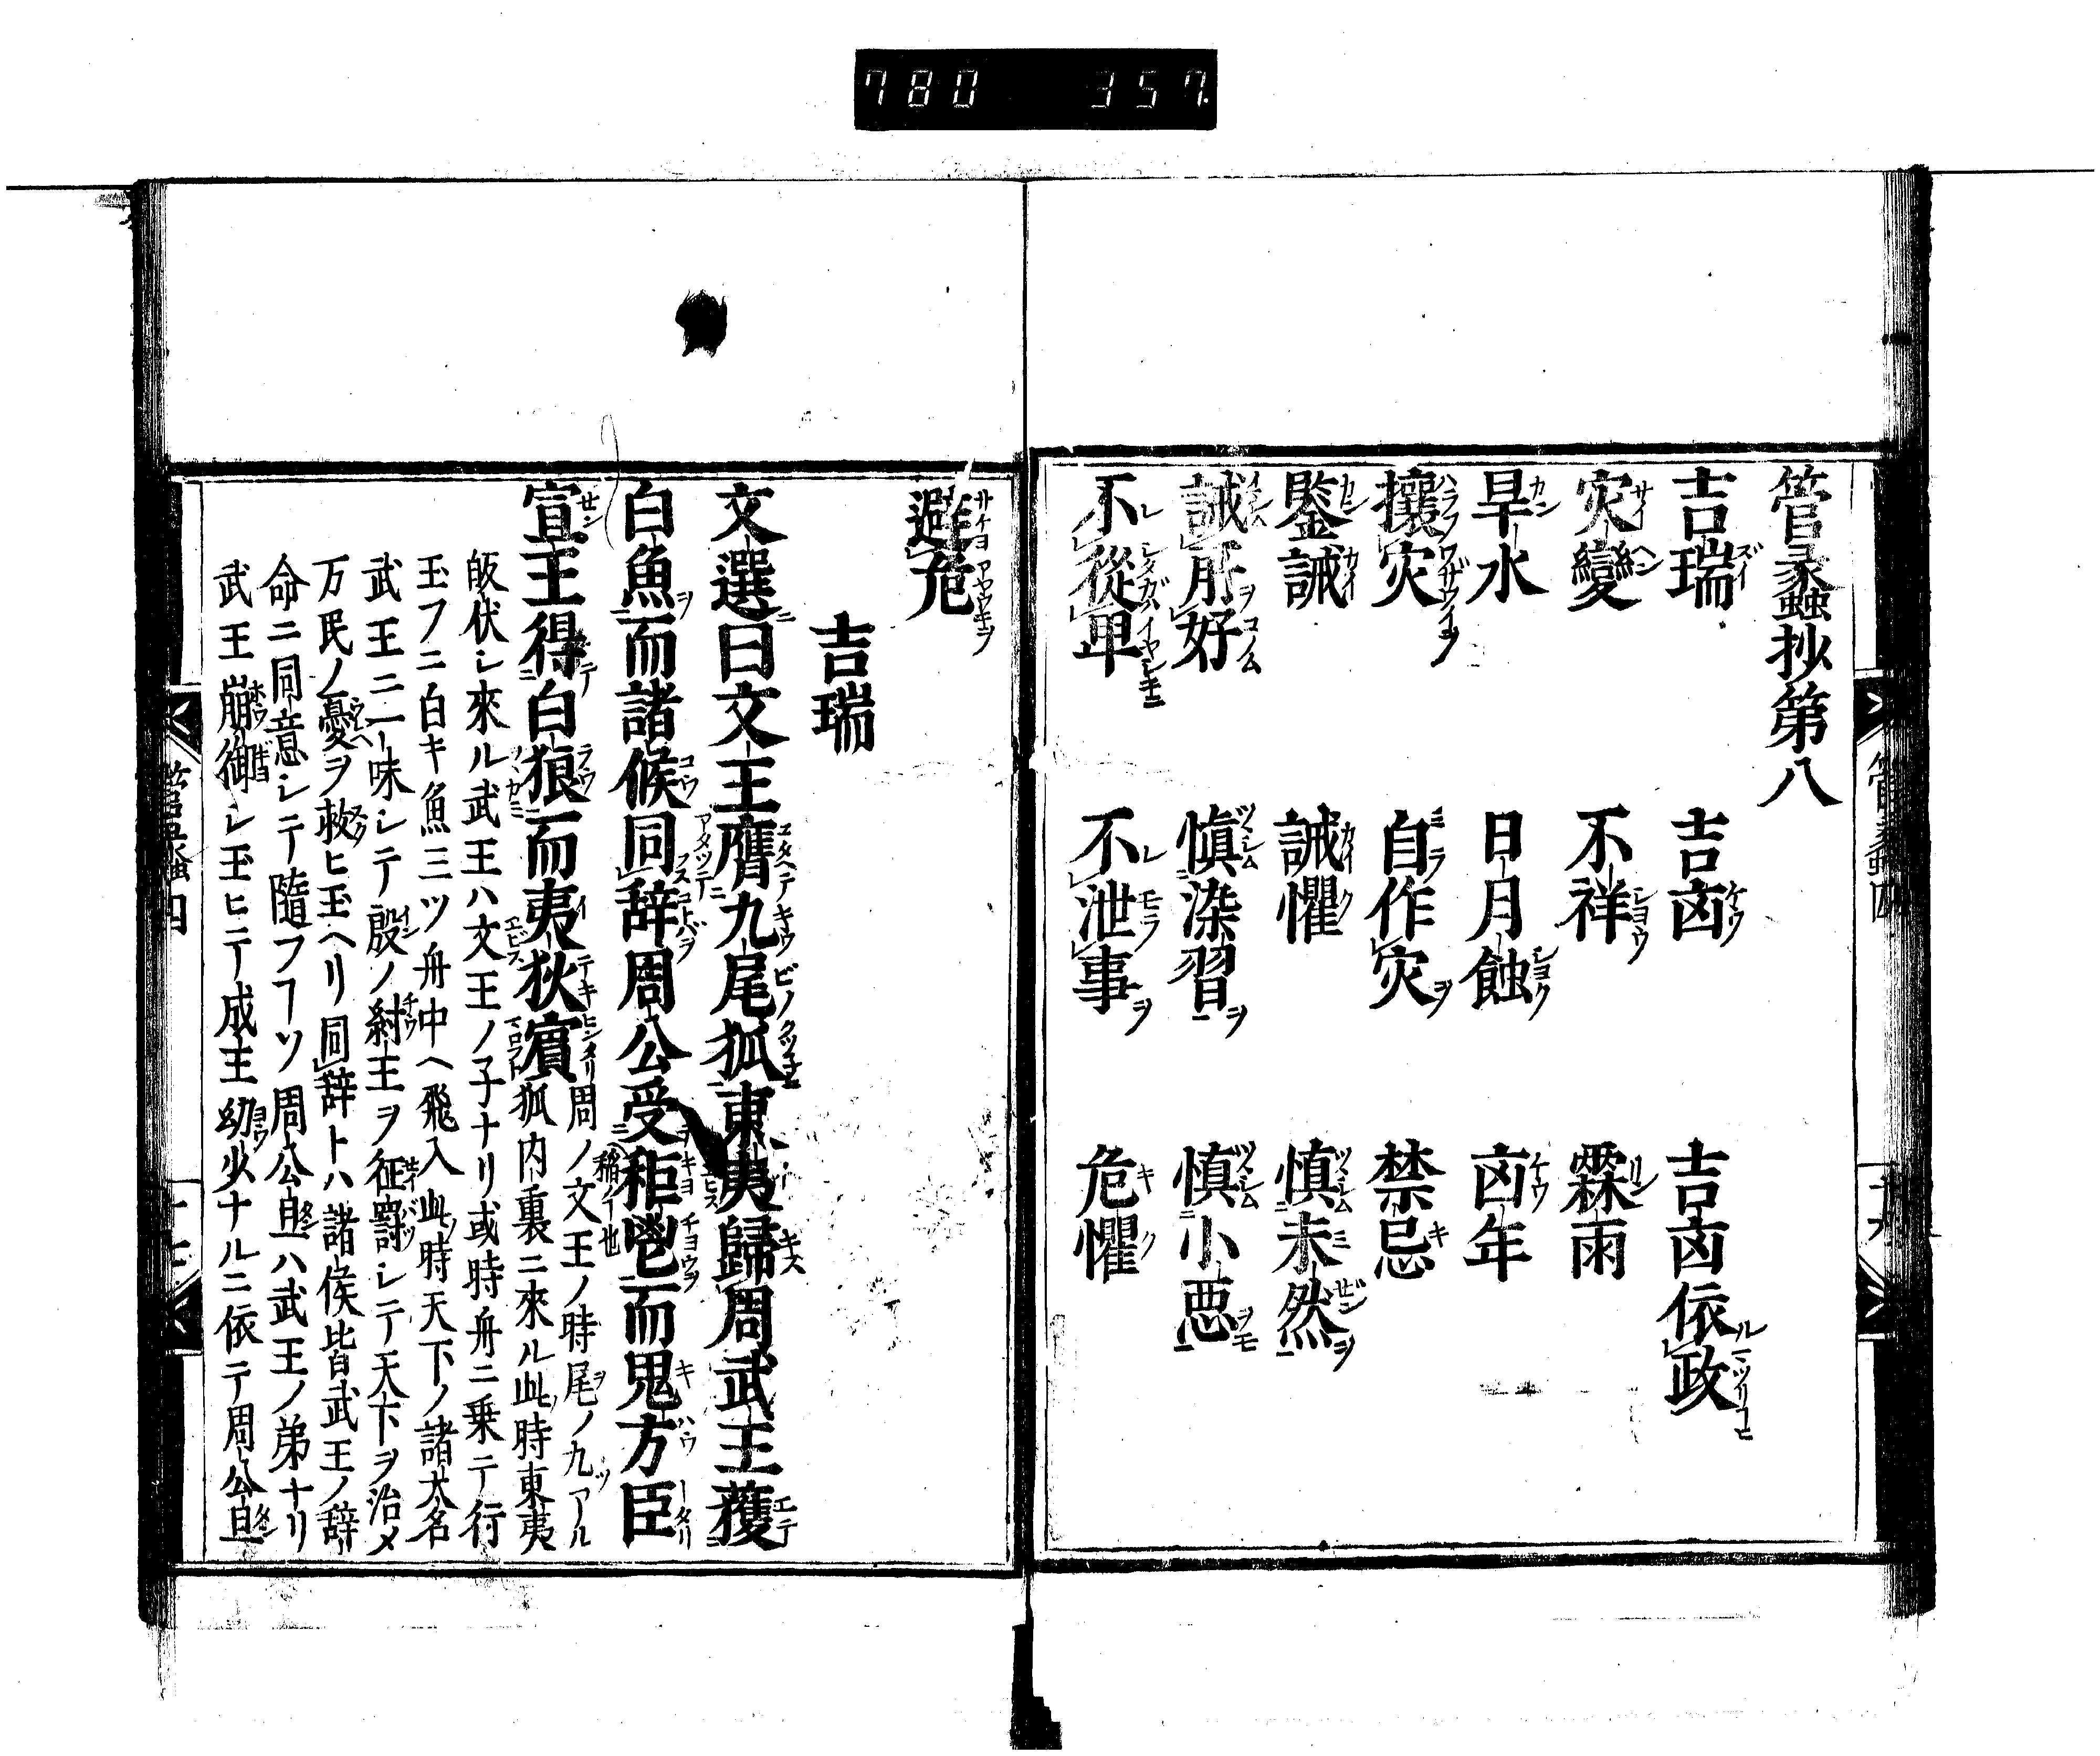 780 357
管蠡抄第八
吉瑞 吉凶 吉凶依政
灾變 不祥 霖雨
旱水 日月蝕 凶年
攘灾 自作灾 禁忌
鑒誡 誡懼 慎未然
誡所好 慎染習 慎小惡
不從卑 不泄事 危懼
避危
吉瑞
文選曰文王膺九尾狐東夷歸周武王獲
白魚而諸候同辞周公受秬鬯而鬼方臣
宣王得白狼而夷狄賓周ノ文王ノ時尾ノ九ツアル
狐内裏ニ來ル此時東夷
皈伏シ來ル武王ハ文王ノ子ナリ或時舟ニ乗テ行
玉フニ白キ魚三ツ舟中ヘ飛入此時天下ノ諸大名
武王ニ一味シテ殷ノ紂王ヲ征罸シテ天下ヲ治メ
万民ノ憂ヲ救ヒ玉ヘリ同辞トハ諸侯皆武王ノ辞
命ニ同意シテ隨フヿソ周公旦ハ武王ノ弟ナリ
武王崩御シ玉ヒテ成王幼少ナルニ依テ周公旦